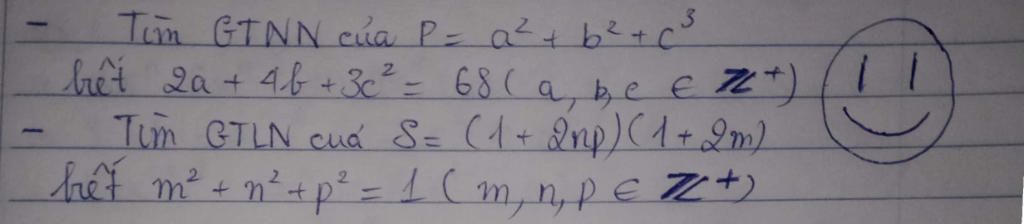 - Tìm GTNN của P = a² + b² + c³
biết 2a + 4b + 3c² = 68 ( a, b, c ∈ ℤ⁺)
- Tìm GTLN cuả S = (1 + 2np)(1 + 2m)
biết m² + n² + p² = 1 ( m, n, p ∈ ℤ⁺)